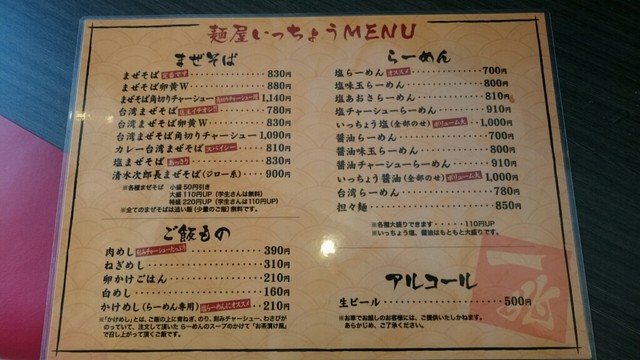 麺屋いっちょうMENU
まぜそば
まぜそば 定番です 830円
まぜそば卵黄W 880円
まぜそば角切りチャーシュー 1,140円
台湾まぜそば 店主イチオシ!! 780円
台湾まぜそば卵黄W 830円
台湾まぜそば角切りチャーシュー 1,090円
カレー台湾まぜそば スパイシー 810円
塩まぜそば あっさり 830円
清水次郎長まぜそば(ジロー系) 900円
※各種まぜそば 小盛 50円引き
大盛 110円UP (学生さんは無料)
特盛 220円UP (学生さんは110円UP)
※全てのまぜそばは追い飯(少量のご飯)無料です。
ご飯もの
肉めし 刻みチャーシューたっぷり 390円
ねぎめし 310円
卵かけごはん 210円
白めし 160円
かけめし(らーめん専用) 塩らーめんにオススメ 210円
※「かけめし」とは、ご飯の上に青ねぎ、のり、刻みチャーシュー、わさびが
のっていて、注文して頂いた らーめんのスープのかけて「お茶漬け風」
で召し上がって頂くご飯です。
らーめん
塩らーめん オススメ 700円
塩味玉らーめん 800円
塩あおさらーめん 810円
塩チャーシューらーめん 910円
いっちょう塩(全部のせ) ボリューム大 1,000円
醤油らーめん 700円
醤油味玉らーめん 800円
醤油チャーシューらーめん 910円
いっちょう醤油(全部のせ) ボリューム大 1,000円
台湾らーめん 780円
担々麺 850円
※各種大盛りできます・・・・・110円UP
※いっちょう塩、醤油はもともと大盛りです。
アルコール
生ビール 500円
※お車でお越しのお客様には、ご提供いたしかねます。
あらかじめ、ご了承ください。